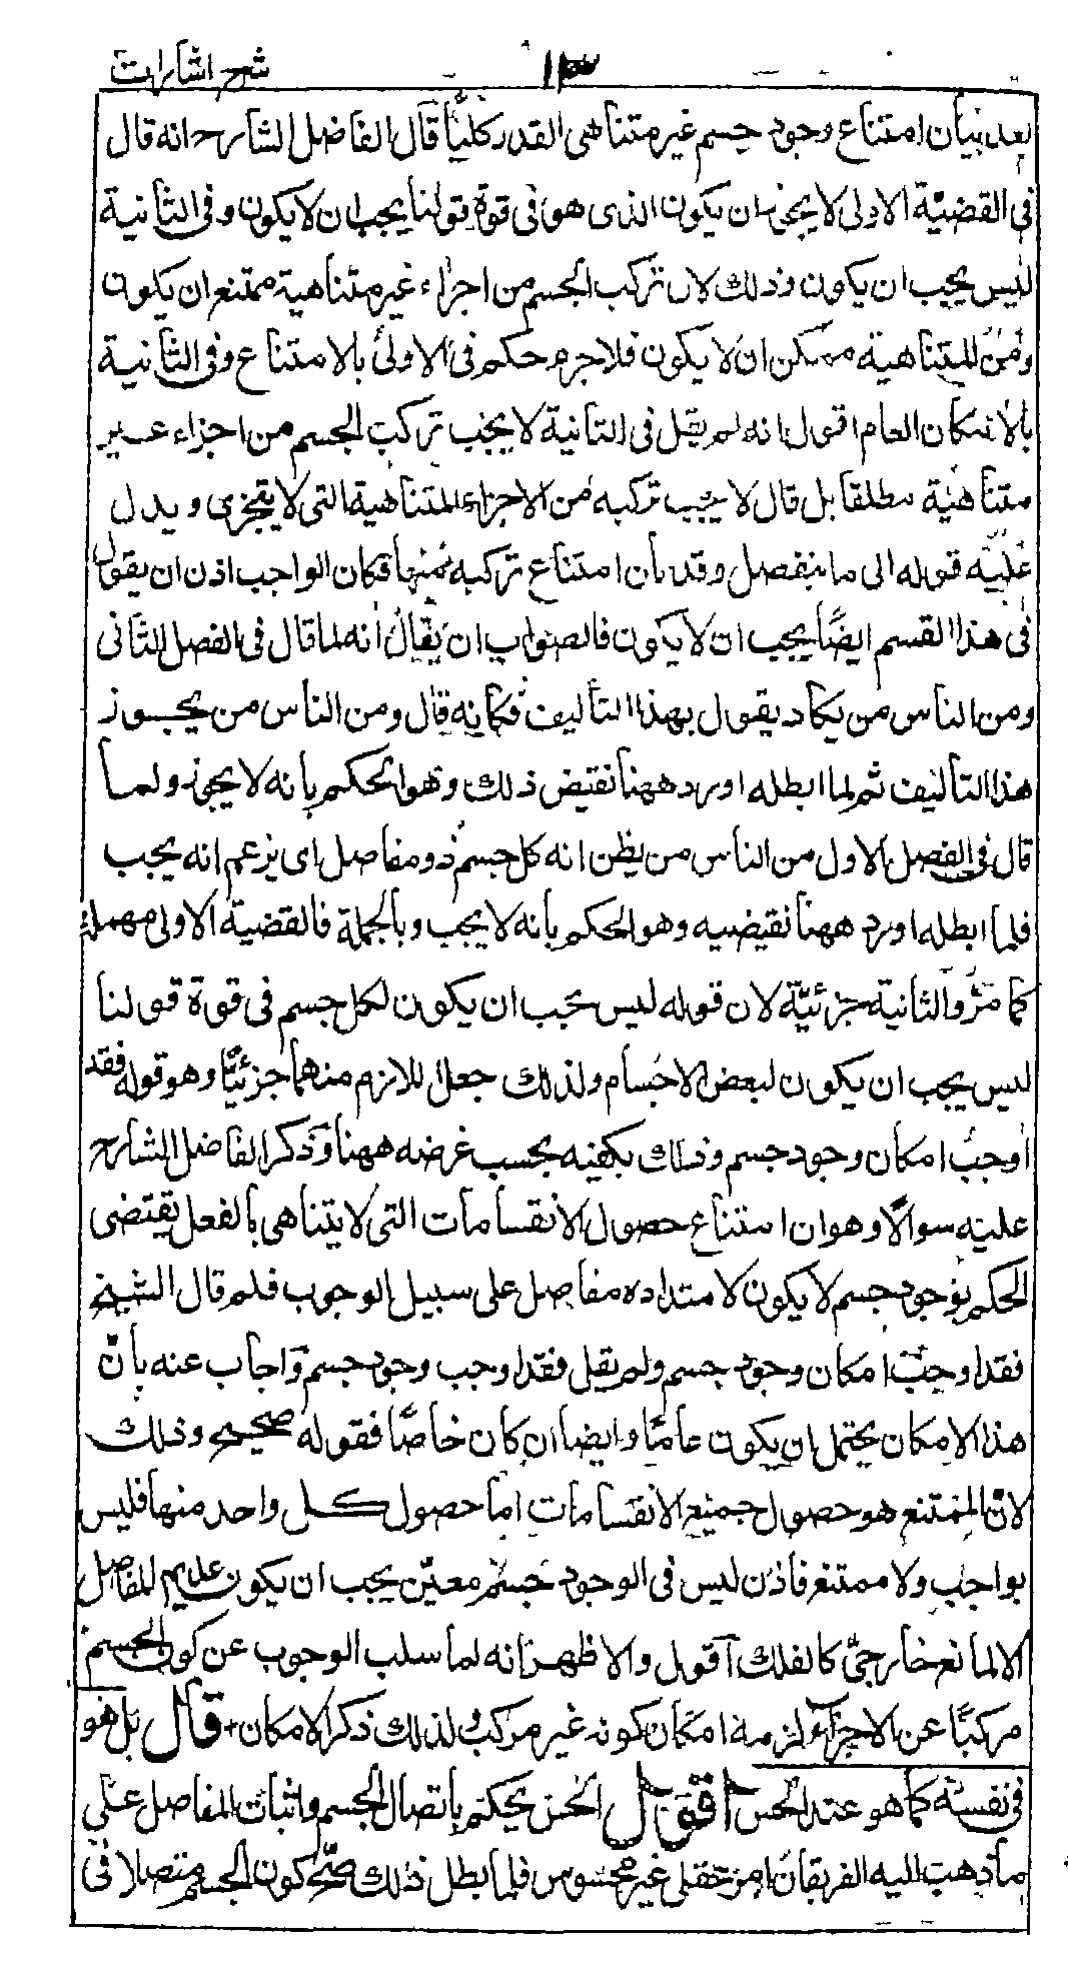 ١٣
شرح اشارات
بعد بيان امتناع وجود جسم غير متناهى القدر كليًا قال الفاضل الشارح انه قال
فى القضيّة الاولى لا يجوز ان يكون الذى هو فى قوة قولنا يجب ان لا يكون وفى الثانية
ليس يجب ان يكون وذلك لان تركب الجسم من اجزاء غير متناهية ممتنع ان يكون
ومن المتناهية ممكن ان لا يكون فلاجرم حكم فى الاولى بالامتناع وفى الثانية
بالامكان العام اقول انه لم يقل فى الثانية لا يجب تركب الجسم من اجزاء غير
متناهية مطلقا بل قال لا يجب تركبه من الاجزاء المتناهية التى لا يتجزى ويدل
عليه قوله الى ما ينفصل وقد بان امتناع تركبه منها فكان الواجب اذن ان يقول
فى هذا القسم ايضًا يجب ان لا يكون فالصواب ان يقال انه لما قال فى الفصل الثانى
ومن الناس من يكاد يقول بهذا التاليف فكانه قال ومن الناس من يجوز
هذا التاليف ثم لما ابطله اورد ههنا نقيض ذلك وهو الحكم بانه لا يجوز ولما
قال فى الفصل الاول من الناس من يظن انه كل جسم ذو مفاصل اى يزعم انه يجب
فلما ابطله اورد ههنا نقيضيه وهو الحكم بانه لا يجب وبالجملة فالقضية الاولى مهملة
كما مرّ والثانية جزئيّة لان قوله ليس يجب ان يكون لكل جسم فى قوة قولنا
ليس يجب ان يكون لبعض الاجسام ولذلك جعل اللازم منهما جزئيًّا وهو قوله فقد
اوجب امكان وجود جسم وذلك يكفيه بحسب غرضه ههنا وذكر الفاضل الشارح
عليه سوالًا وهو ان امتناع حصول الانقسامات التى لا يتناهى بالفعل يقتضى
الحكم بوجود جسم لا يكون لامتداده مفاصل على سبيل الوجوب فلم قال الشيخ
فقد اوجب امكان وجود جسم ولم يقل فقد اوجب وجود جسم واجاب عنه بانّ
هذا الامكان يحتمل ان يكون عامًا وايضا ان كان خاصًّا فقوله صحيح وذلك
لانّ الممتنع هو حصول جميع الانقسامات اما حصول كل واحد منها فليس
بواجب ولا ممتنع فاذن ليس فى الوجود جسم معيّن يجب ان يكون عديم المفاصل
الا لمانع خارجىّ كالفلك اقول والاظهر انه لما سلب الوجوب عن كون الجسم
مركبًا عن الاجزاء لزمه امكان كونه غير مركب ولذلك ذكر الامكان قال بل هو
فى نفسه كما هو عند الحس اقول الحس يحكم باتصال الجسم واثبات المفاصل على
ما ذهب اليه الفريقان امر عقلى غير محسوس فلما ابطل ذلك صحّ كون الجسم متصلا فى